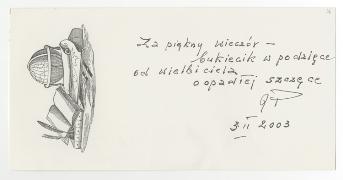 Za piękny wieczór –
bukiecik w podzięce
od wielbiciela
o opadłej szczęce
GT
3 II 2003